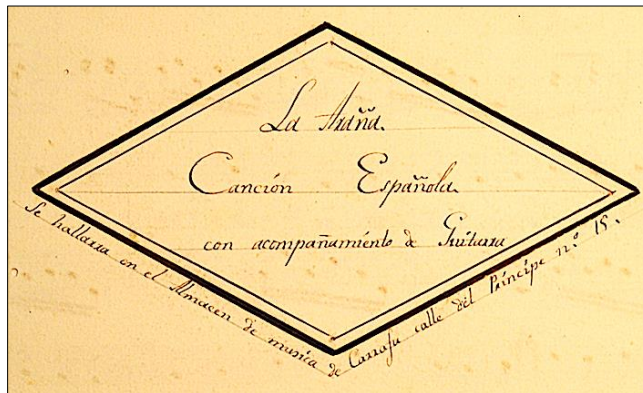 La Araña.
Canción Española
con acompañamiento de Guitarra
Se hallarra en el Almacen de musica de Carrafa calle del Príncipe n.º 15.